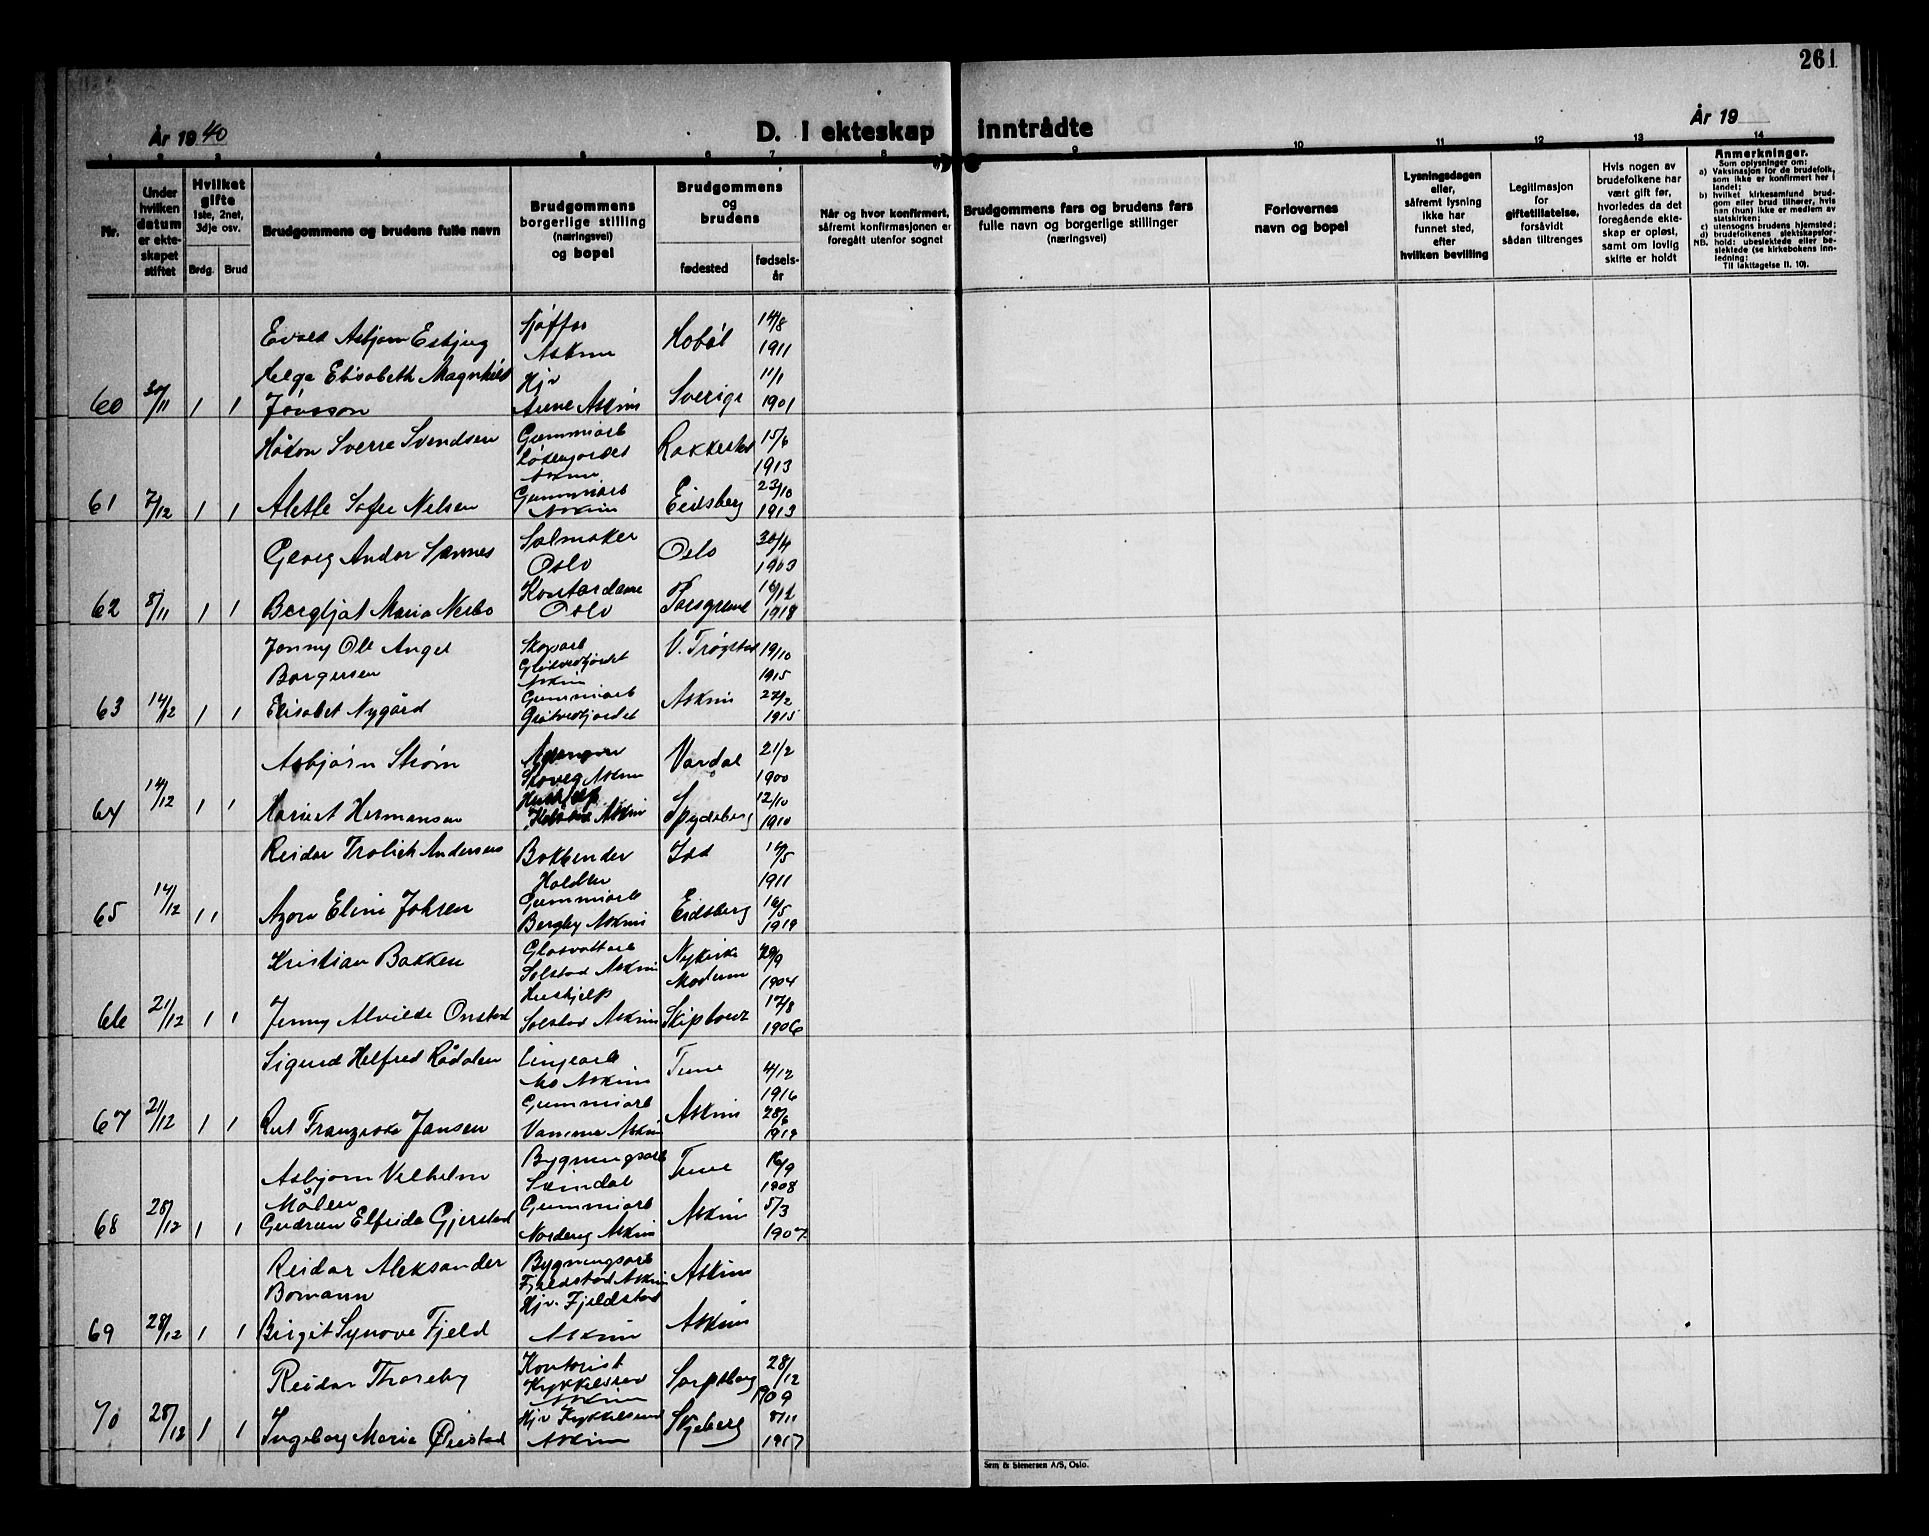 261
År 1940
D. I ekteskap inntrådte
År 19
1 2 3 4 5 6 7 8 9 10 11 12 13 14
Nr.
Under
hvilken
datum
er ekte-
skapet
stiftet
Hvilket
gifte
1ste, 2net,
3dje osv.
Brdg. Brud
Brudgommens og brudens fulle navn
Brudgommens
borgerlige stilling
(næringsvei)
og bopel
Brudgommens
og
brudens
fødested
fødsels-
år
Når og hvor konfirmert,
såfremt konfirmasjonen er
foregått utenfor sognet
Brudgommens fars og brudens fars
fulle navn og borgerlige stillinger
(næringsvei)
Forlovernes
navn og bopel
Lysningsdagen
eller,
såfremt lysning
ikke har
funnet sted,
efter
hvilken bevilling
Legitimasjon
for
giftetillatelse,
forsåvidt
sådan tiltrenges
Hvis nogen av
brudefolkene har
vært gift før,
hvorledes da det
foregående ekte-
skap er opløst,
samt om lovlig
skifte er holdt
Anmerkninger.
Som oplysninger om:
a) Vaksinasjon for de brudefolk,
som ikke er konfirmert her i
landet;
b) hvilket kirkesamfund brud-
gom eller brud tilhører, hvis
han (hun) ikke er medlem av
statskirken;
c) utensogns brudens hjemsted;
d) brudefolkenes slektskapsfor-
NB. hold: ubeslektede eller be-
slektede (se kirkebokens inn-
ledning;
Til iakttagelse II. 10).
Evald Asbjørn Esbjug Sjåffør Hobøl 14/8
Askim 1911
Helga Elisabeth Magnhild Hjv 11/1
60 30/11 1 1 Jönsson Askim Sverige 1901
Håkon Sverre Svendsen Gummiarb Rakkestad 15/6
Askim 1913
Gummiarb 23/10
61 7/12 1 1 Alette Sofie Nelsen Askim Eidsberg 1913
Georg Andor Sannes Salmaker Oslo 30/4
Oslo 1903
Kontordame 16/12
62 8/11 1 1 Bergljot Maria Nerbo Oslo Porsgrund 1918
Jonny Ole Angel Skoarb V. Trøgstad 19/10
Borgersen Grøtvedtjordet
Askim 1915
Gummiarb 27/2
63 14/12 1 1 Elisabet Nygård Grøtvedtjordet Askim 1915
Asbjørn Strøm Vardal 21/2
Skoveg Askim 1900
Hushjelp 12/10
64 14/12 1 1 Mariet Hermansen Askim Spydeberg 1910
Reidar Frolich Andersen Bokbinder Idd 14/5
Halden 1911
Gummiarb 16/5
65 14/12 1 1 Azora Eline Johsen Bergby Askim Eidsberg 1919
Kristian Bakken Glasvattarb Nykirke 29/9
Solstad Askim Modum 1904
Hushjelp 17/8
66 21/12 1 1 Jenny Alvilde Onstad Solstad Askim Skiptvedt 1906
Sigurd Helfred Rådalen Linjearb Tune 4/12
Mo Askim 1916
Gummiarb 28/6
67 21/12 1 1 Rut Franziska Jansen Vamma Askim Askim 1919
Asbjørn Vilhelm Bygningsarb Tune 16/9
Målen Svindal 1908
Gummiarb 5/3
68 28/12 1 1 Gudrun Elfrida Gjerstad Nordeng Askim Askim 1907
Reidar Aleksander Bygningsarb Askim
Bomann Fjeldstad Askim
Hjv. Fjeldstad
69 28/12 1 1 Birgit Synove Fjeld Askim Askim
Reidar Thoreby Kontorist Sarpsborg 28/12
Kykkelsrud
Askim 1909
Hjv Kykkelsrud 8/11
70 28/12 1 1 Ingeborg Marie Øiestad Askim Skjeberg 1917
Sem & Stenersen A/S, Oslo.